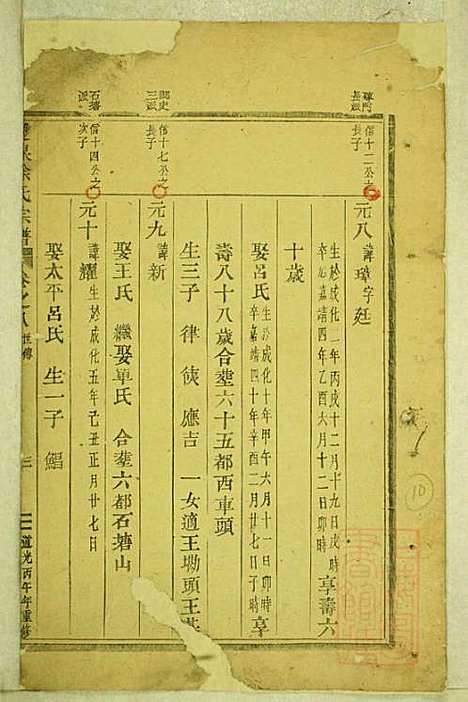 長派
信十二公之
長子
元八
諱璋字廷
生於成化二年丙戌十二月十九日戌時
卒於嘉靖四年乙酉六月十二日卯時
享壽六
十歲
娶呂氏
生於成化十年甲午六月十一日卯時
卒於嘉靖四十年辛酉二月廿七日子時
享
壽八十八歲合塟六十五都西車頭
生三子 律 俠 應吉 一女適王塘頭王
三派
信十七公之
長子
元九
諱新
娶王氏 繼娶單氏 合塟六都石塘山
石塘
派
信十四公之
次子
元十
諱耀
生於成化五年己丑正月廿七日
娶太平呂氏 生一子 鯧
徐氏宗譜 卷之八
世傳
三
道光丙午年重修
10